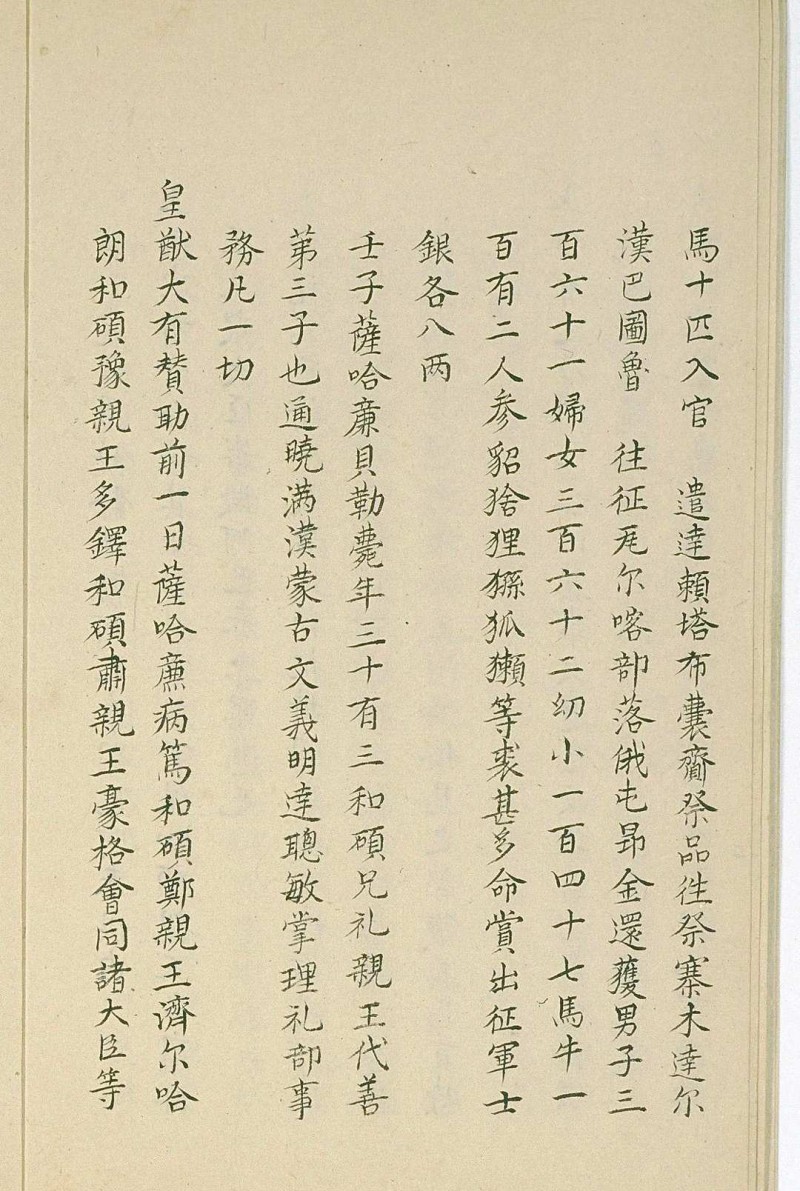 馬十匹入官　遣達頼塔布囊齎祭品徃祭寨木達尔
漢巴圖魯　往征兎尔喀部落俄屯昻金還獲男子三
百六十一婦女三百六十二幼小一百四十七馬牛一
百有二人参貂猞狸猻狐獺等裘甚多命賞出征軍士
銀各八两
壬子薩哈廉貝勒薨年三十有三和碩兄礼親王代善
第三子也通曉满漢蒙古文義明達聰敏掌理礼部事
務凡一切
皇猷大有賛助前一日薩哈廉病篤和碩鄭親王濟尔哈
朗和碩豫親王多鐸和碩肅親王豪格會同諸大臣等